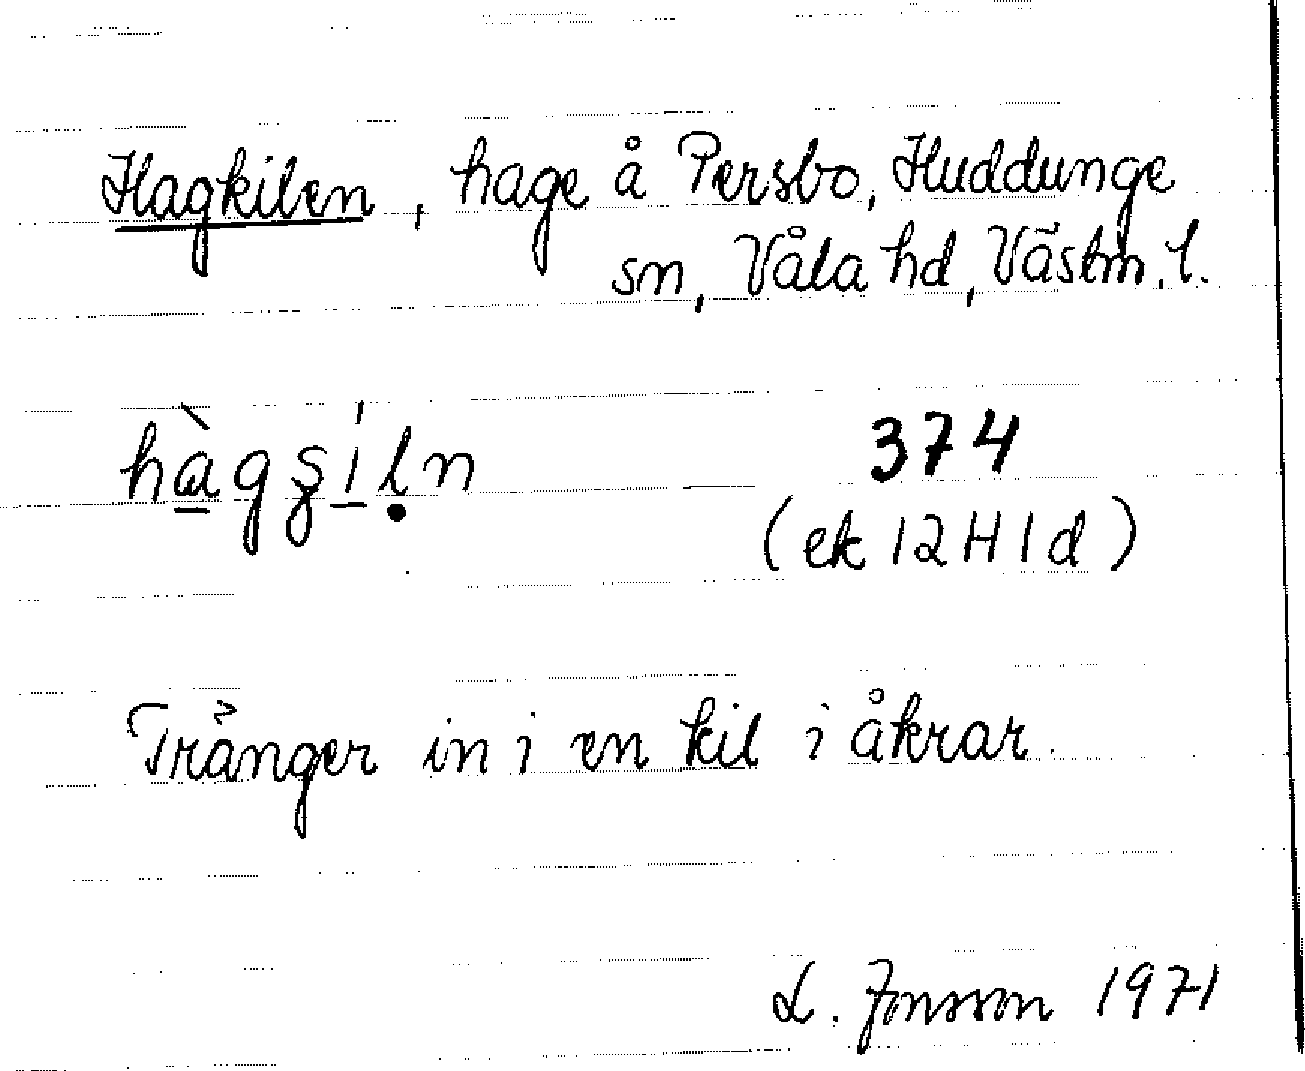 Hagkilen, hage å Persbo, Huddunge
sn, Våla hd, Västm. l.
hàgʂíḷn
374
(ek 12H1d)
Tränger in i en kil i åkrar.
L. Jonsson 1971